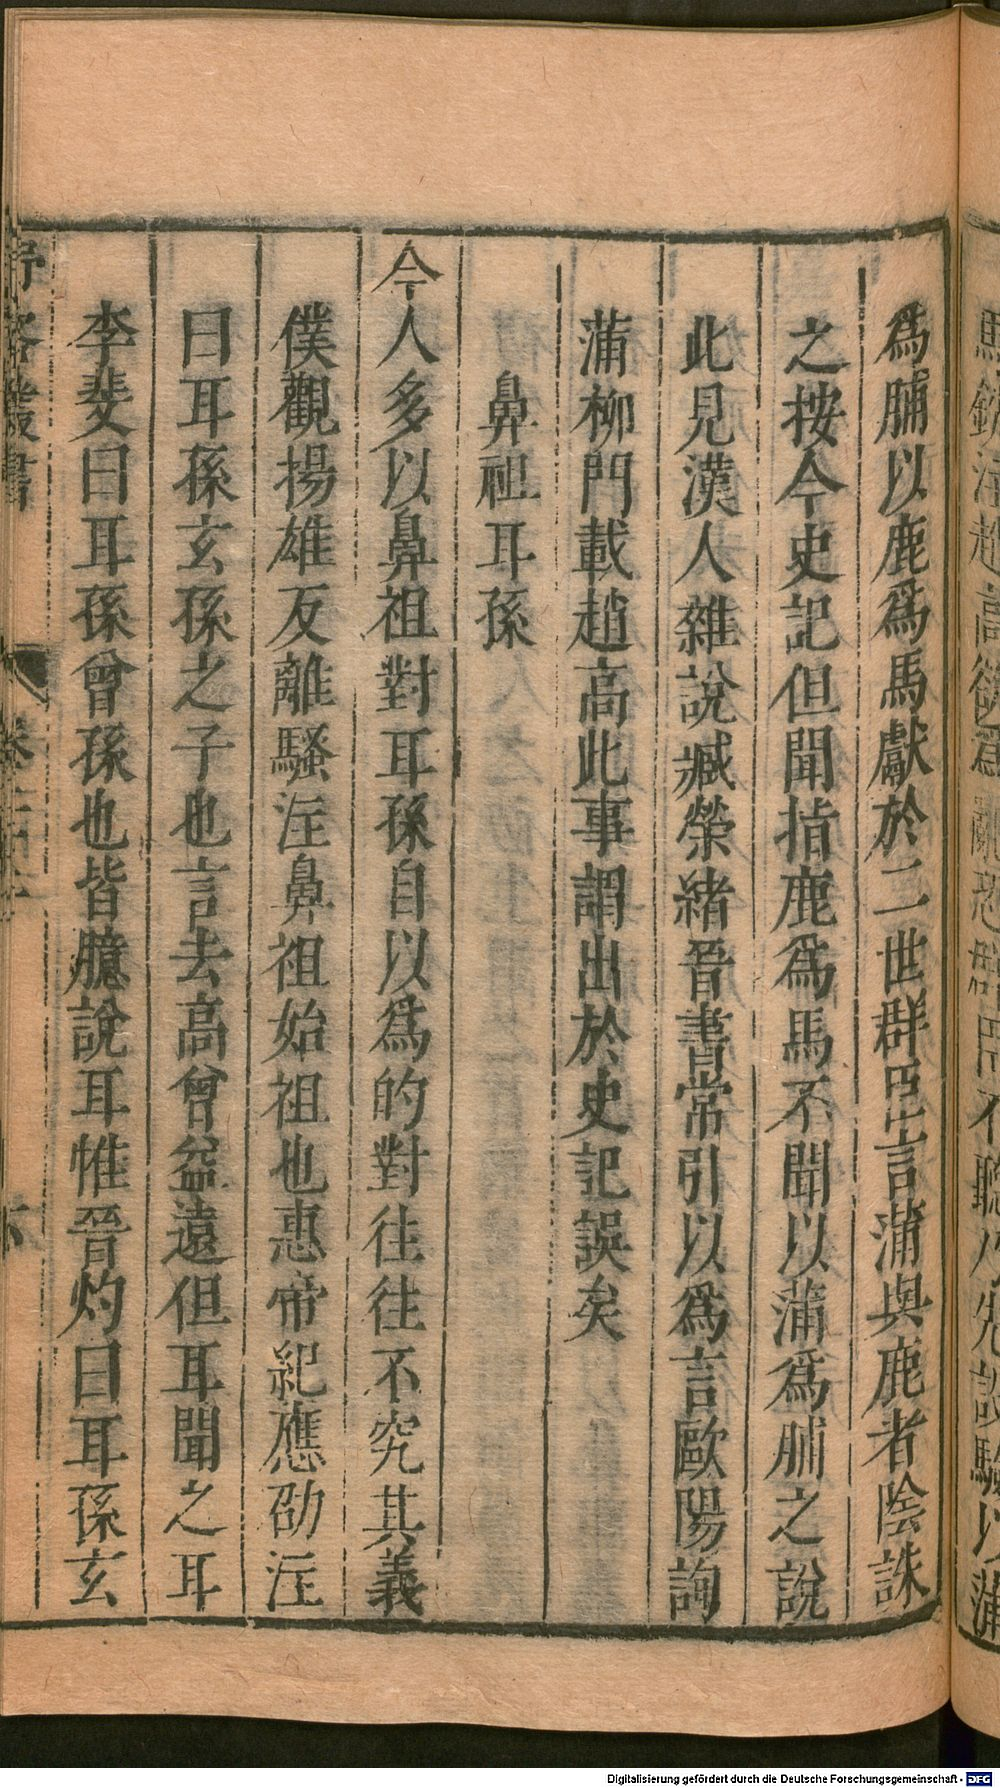 爲脯以鹿爲馬獻於二世群臣言蒲與鹿者陰誅
之按今史記但聞指鹿爲馬不聞以蒲爲脯之說
此見漢人雜說臧榮緒晉書常引以爲言歐陽詢
蒲柳門載趙高此事謂出於史記誤矣
鼻祖耳孫
今人多以鼻祖對耳孫自以爲的對往往不究其義
僕觀揚雄反離騷注鼻祖始祖也惠帝紀應劭注
曰耳孫玄孫之子也言去高曾益遠但耳聞之耳
李斐曰耳孫曾孫也皆臆說耳惟晉灼曰耳孫玄
Digitalisierung gefördert durch die Deutsche Forschungsgemeinschaft - DFG